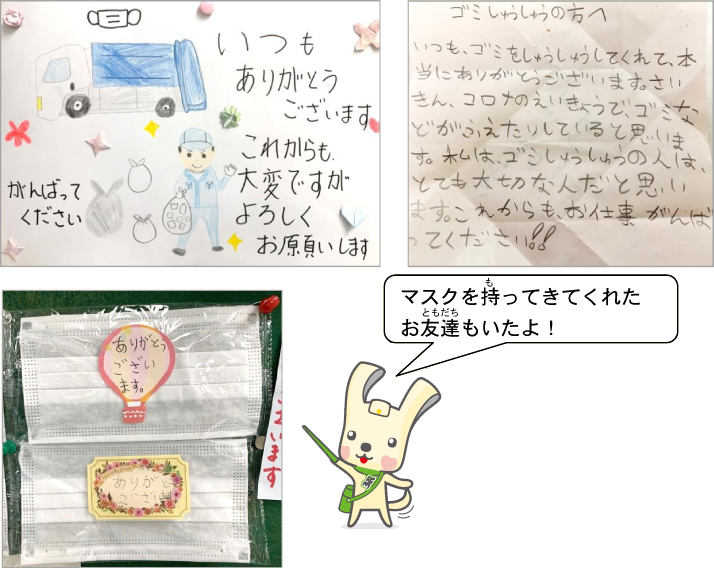 いつも
ありがとう
ございます
これからも、
大変ですが
よろしく
お願いします
がんばって
ください
ゴミしゅうしゅうの方へ
いつも、ゴミをしゅうしゅうしてくれて、本
当にありがとうございます。さい
きん、コロナのえいきょうで、ゴミな
どがふえたりしていると思いま
す。私は、ゴミしゅうしゅうの人は、
とても大切な人だと思い
ます。これからも、お仕事がんば
ってください!!
マスクを持ってきてくれた
も
お友達もいたよ！
ともだち
ありがとう
ござい
ます。
ありがとう
ござい
います